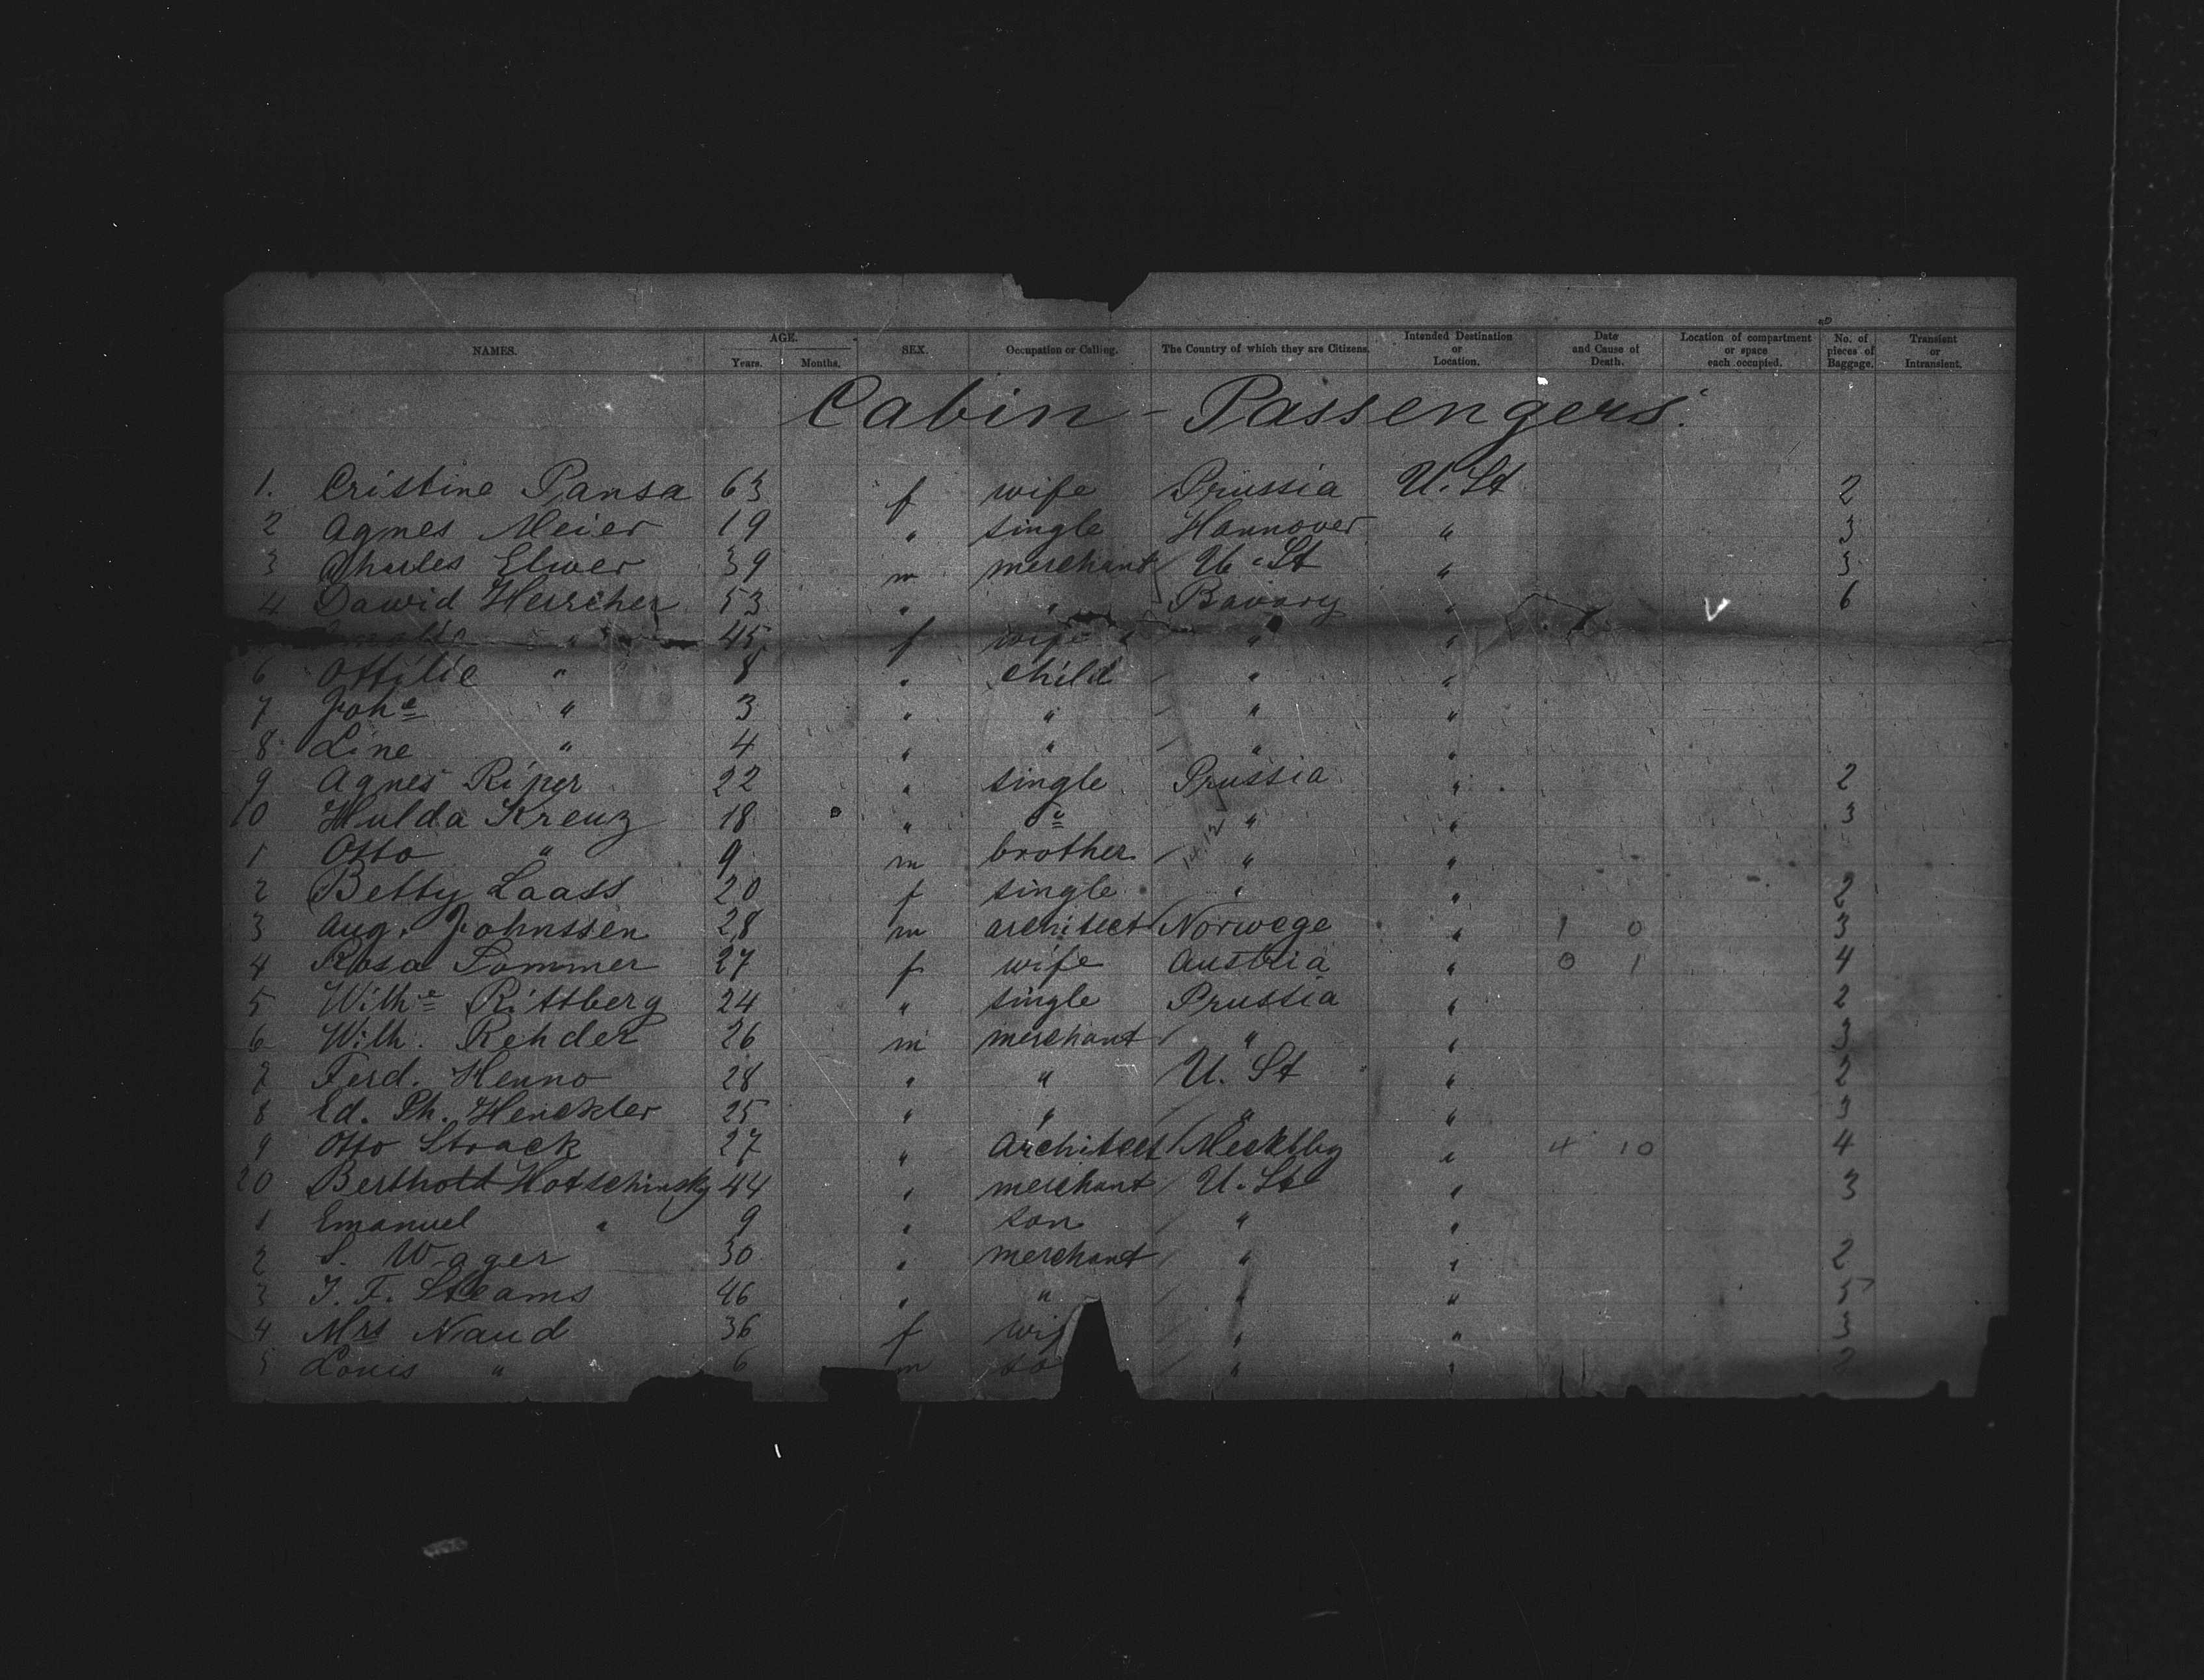 NAMES. AGE. Years. Months. SEX. Occupation or Calling. The Country of which they are Citizens. Intended Destination or Location. Date and Cause of Death. Location of compartment or space each occupied. No. of pieces of Baggage. Transient or Intransient.
Cabin - Passengers.
1. Cristine Pansa 63 f wife Prussia U. St 2
2 Agnes Meier 19 " single Hannover " 3
3 Charles Elwer 39 m merchant U. St " 3
4 Dawid Herscher 53 " " Bavary " 6
" 45 f wife " "
6 Ottilie " 8 " child " "
7 Joh<u>e</u> " 3 " " " "
8 Line " 4 " " " "
9 Agnes Riper 22 " single Prussia " 2
10 Hulda Kreuz 18 " " " " 3
1 Otto " 9 m brother " "
2 Betty Laass 20 f single " " 2
3 Aug. Johnssen 28 m architect Norwege " 1 0 3
4 Rosa Sommer 27 f wife Austria " 0 1 4
5 Wilh<u>e</u> Rittberg 24 " single Prussia " 2
6 Wilh. Rehder 26 m merchant " " 3
7 Ferd. Henno 28 " " U. St " 2
8 Ed. Ph. Henckler 25 " " " " 3
9 Otto Strack 27 " Architect Mecklbg " 4 10 4
20 Berthold Hotschinsky 44 " merchant U. St " 3
1 Emanuel " 9 " son " "
2 S. Wager 30 " merchant " " 2
3 J. F. Stearns 46 " " " "
4 Mrs Naud 36 f " " 3
5 Louis " 6 m " " 2